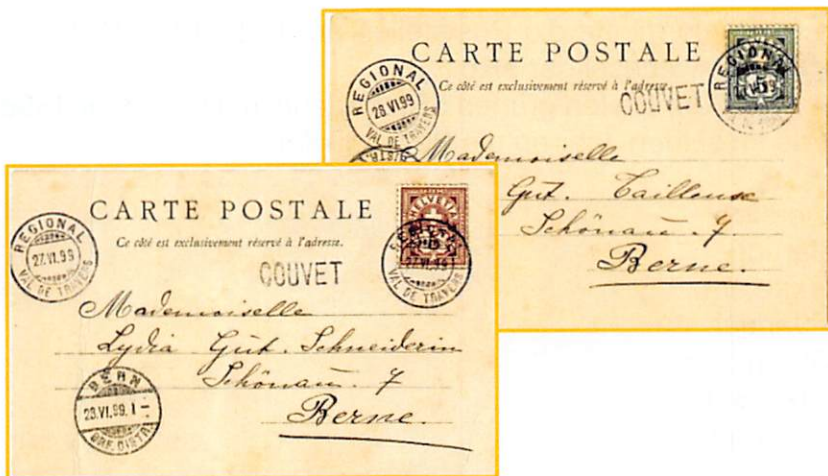 CARTE POSTALE
Ce côté est exclusivement réservé à l'adresse.
REGIONAL
28.VI.99
VAL DE TRAVERS
COUVET
REGIONAL
5
VAL DE TRAVERS
Mademoiselle
Gut. Tailleuse
Schönau. 7
Berne.
CARTE POSTALE
Ce côté est exclusivement réservé à l'adresse.
REGIONAL
27.VI.99
VAL DE TRAVERS
COUVET
HELVETIA
27.VI.99
VAL DE TRAVERS
Mademoiselle
Lydia Gut. Schneiderin
Schönau. 7
Berne.
BERN
28.VI.99. I -
BRF. DISTR.